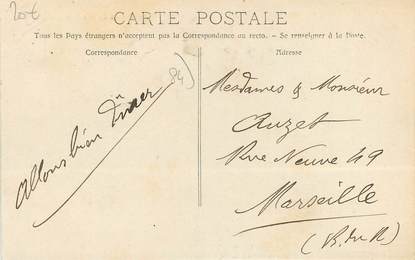 20€
CARTE POSTALE
Tous les Pays étrangers n'acceptent pas la Correspondance au recto. — Se renseigner à la Poste.
Correspondance
Adresse
84)
Allons bien Dîner
Mesdames & Monsieur
Auzet
Rue Neuve 49
Marseille
(B. du R)